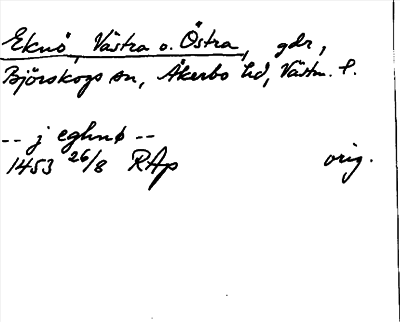 Eknö, Västra o. Östra, gdr,
Björskogs sn, Åkerbo hd, Västm. l.
-- j eghnø --
1453 26/8 RAp orig.